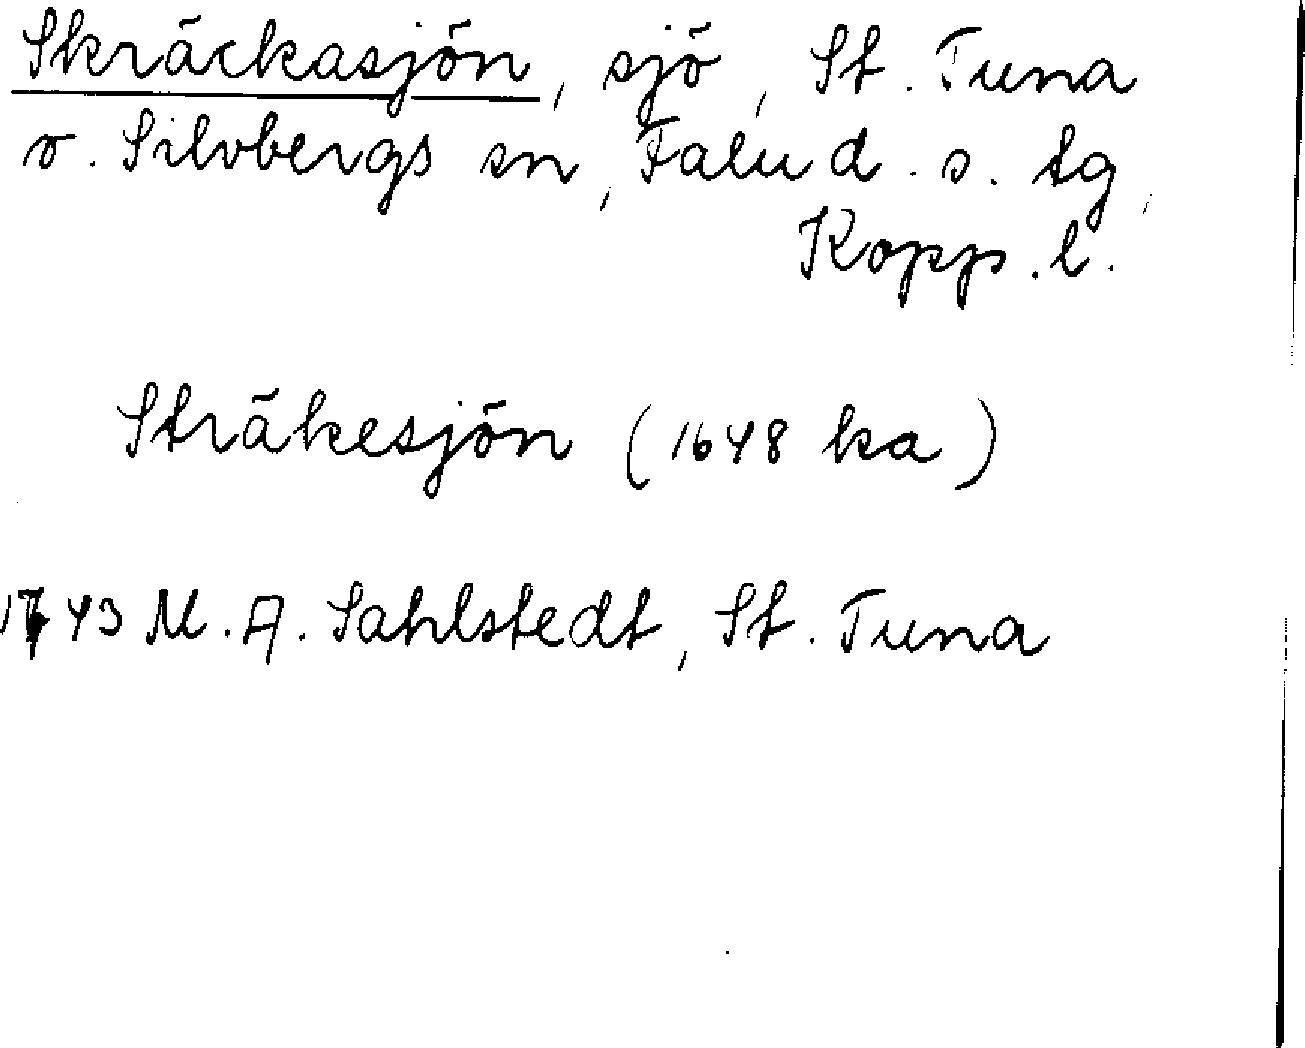 Skräckasjön, sjö, St. Tuna
o. Silvbergs sn, Falu d. s. tg,
Kopp. l.
Sträkesjön (1648 ka)
1743 M. A. Sahlstedt, St. Tuna